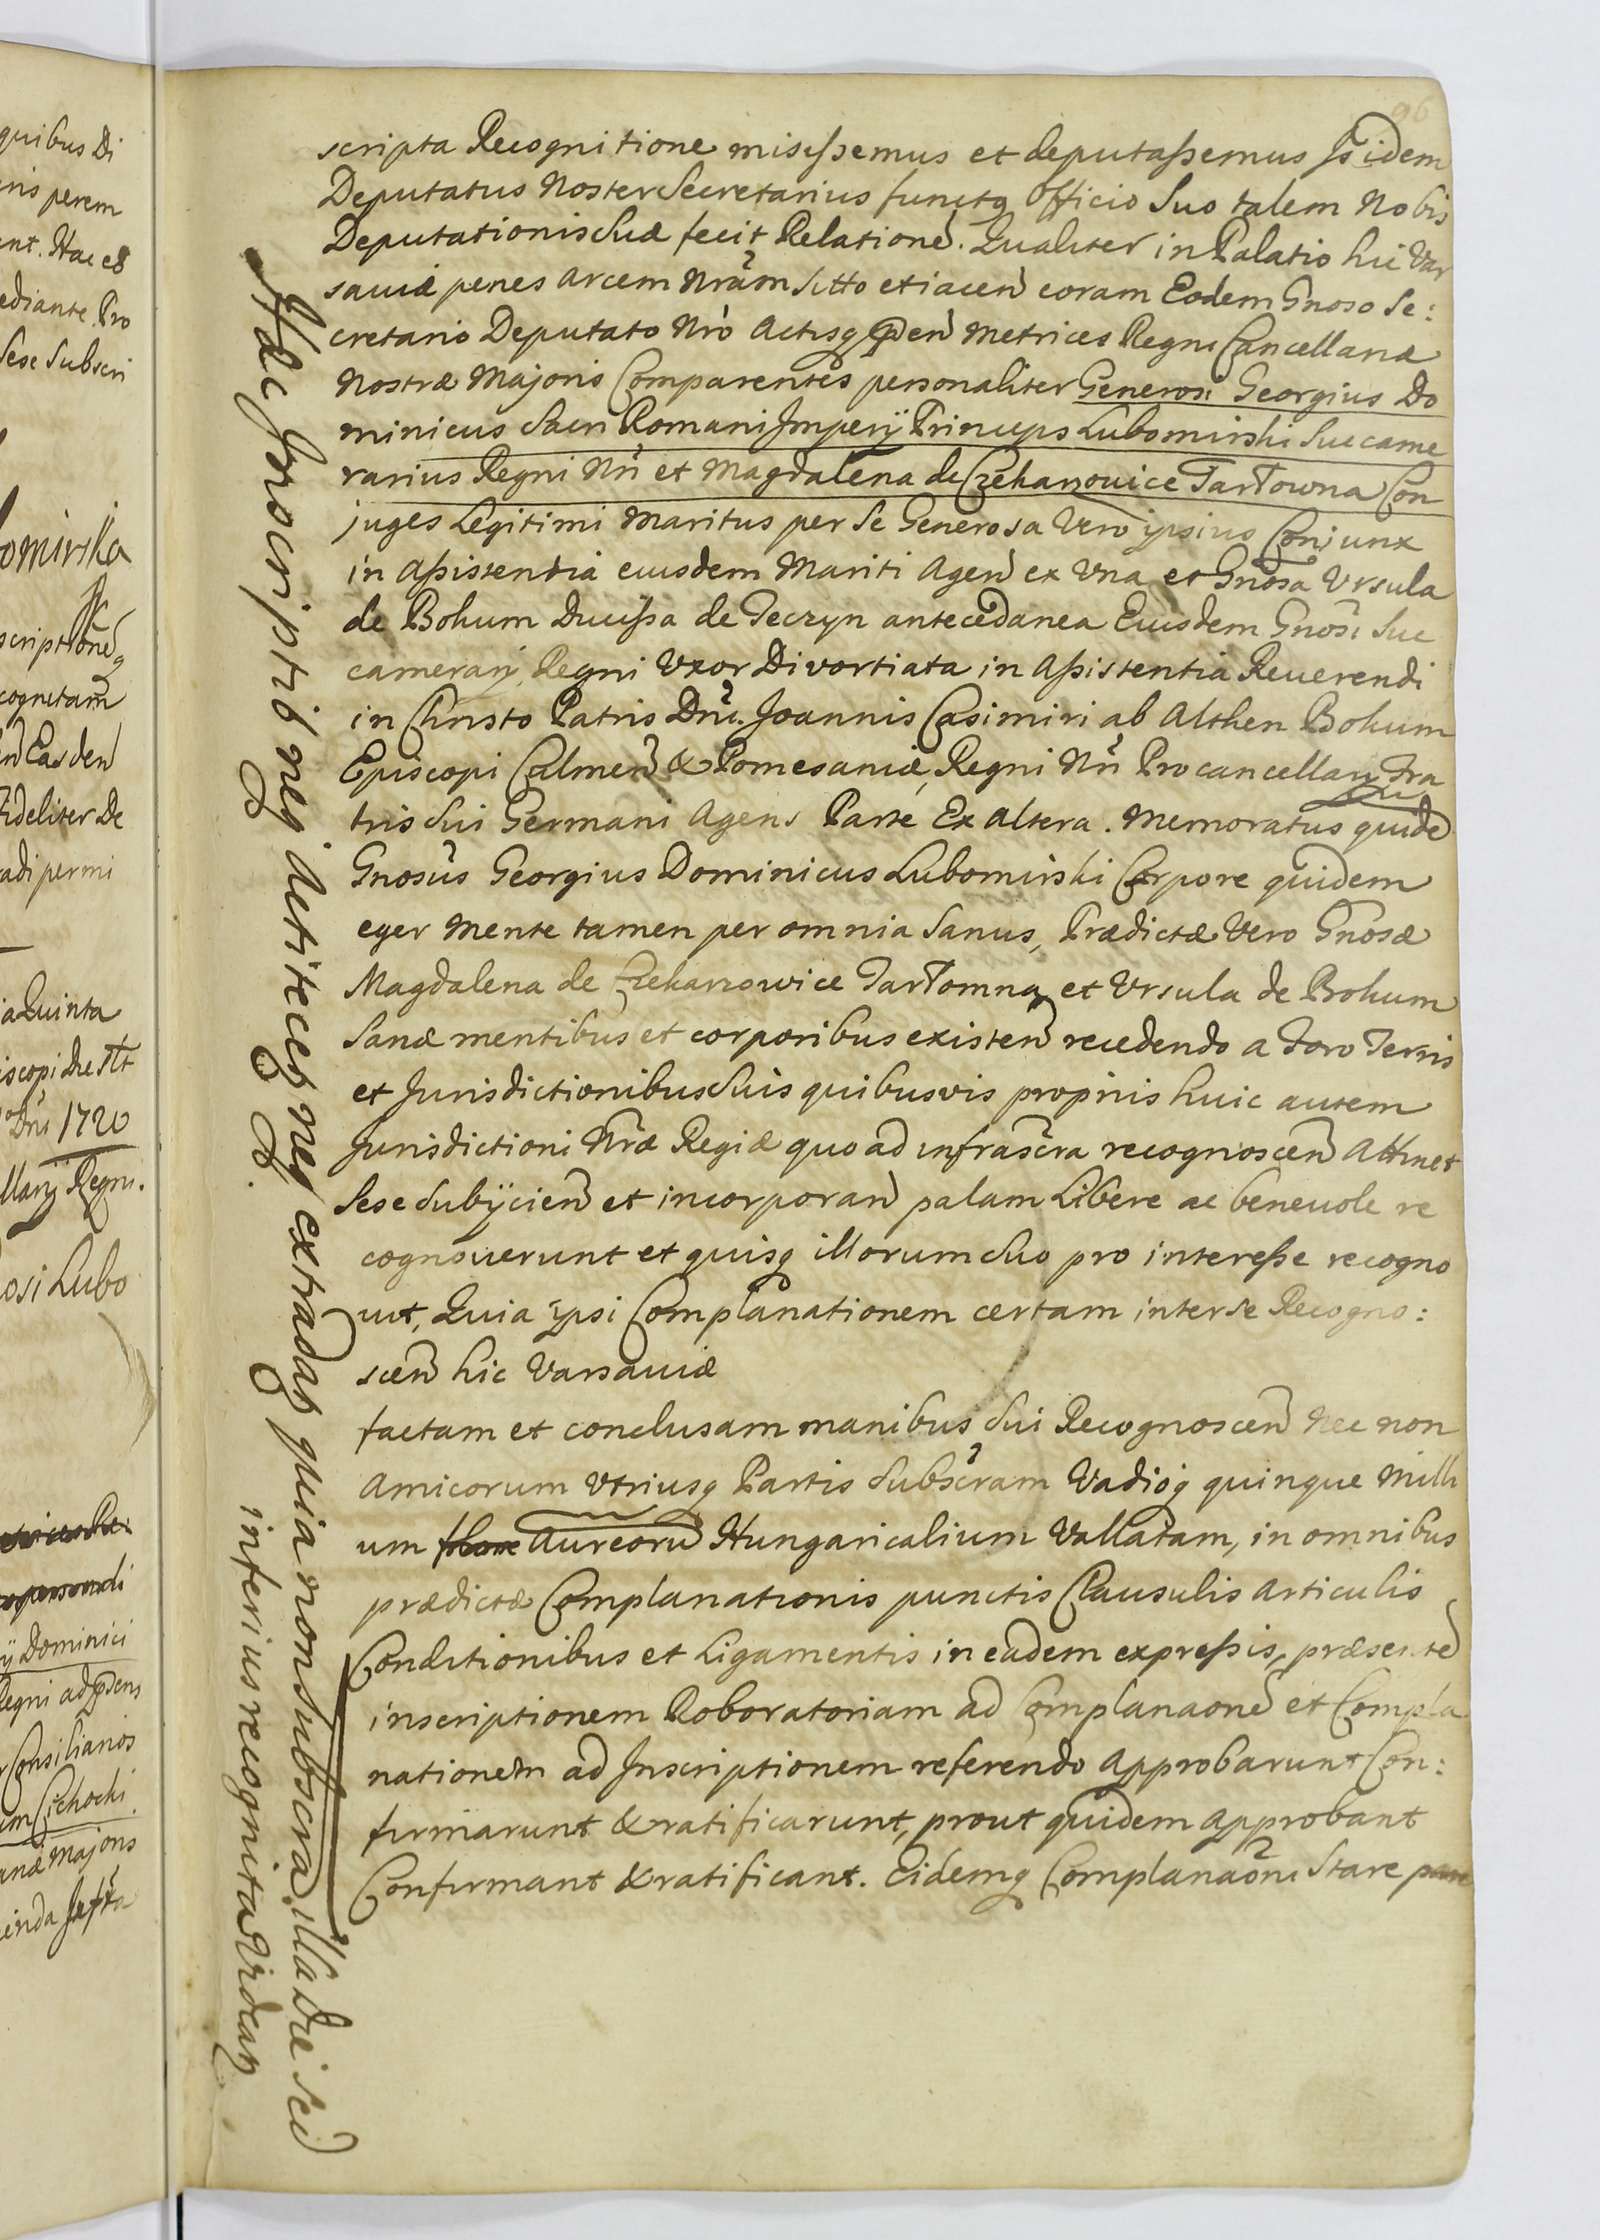 96
scripta Recognitione misissemus et deputassemus Is idem
Deputatus Noster Secretarius functq Officio Suo talem Nobis
Deputationis Suæ fecit Relatione. Qualiter in Palatio hic Var
saviæ penes Arcem Nram Sitto et iacen coram Eodem Gnoso Se:
cretario Deputato Nro Actisq pden Metrices Regni Cancellariæ
Nostræ Majoris Comparentes personaliter Generosi Georgius Do
minicus Sacri Romani Imperij Princeps Lubomirski Succame
rarius Regni Nri et Magdalena de Czekarzowice Tarłowna Con
juges Legitimi Maritus per Se Generosa Vero ipsius Coniunx
in Assistentia eiusdem Mariti Agen ex Una et Gnosa Ursula
de Bohum Ducissa de Teczyn antecedanea Eiusdem Gnosi Suc
camerarij Regni Uxor Divortiata in Assistentia Reverendi
in Christo Patris Dni. Joannis Casimiri ab Althen Bohum
Episcopi Culmen & Pomesaniæ, Regni Nri Procancellarij Fra
tris Sui Germani Agens Parte Ex altera. Memoratus quide
Gnosus Georgius Dominicus Lubomirski Corpore quidem
eger Mente tamen per omnia Sanus, Prædictæ Vero Gnosæ
Magdalena de Czekarzowice Tarłowna et Ursula de Bohum
Sanæ mentibus et corporibus existen recedendo a Foro Terris
et Jurisdictionibus Suis quibusvis proprijs huic autem
Jurisdictioni Nræ Regiæ quo ad infrascra recognoscen Attinet
Sese Subijcien et incorporan palam Libere ac benevole re
cognoverunt et quisq illorum Suo pro interesse recogno
vit, Quia ipsi Complanationem certam inter Se Recogno:
scen hic Varsaviæ
factam et conclusam manibus Sui Recognoscen Nec non
Amicorum Utriusq Partis Subscram Vadioq quinque Milli
um Aureoru Hungaricalium Vallatam, in omnibus
prædictæ Complanationis punctis Clausulis Articulis
Conditionibus et Ligamentis in eadem expressis, præsente
inscriptionem Roboratoriam ad Complanaone et Compla
nationem ad Inscriptionem referendo Approbarunt Con:
firmarunt & ratificarunt, prout quidem Approbant
Confirmant & ratificant. Eidemq Complanaoni Stare
Hæc Inscriptio neq Actitetq neq extradatq quia non Subscra illa Die sed
inferius recognita Videatq